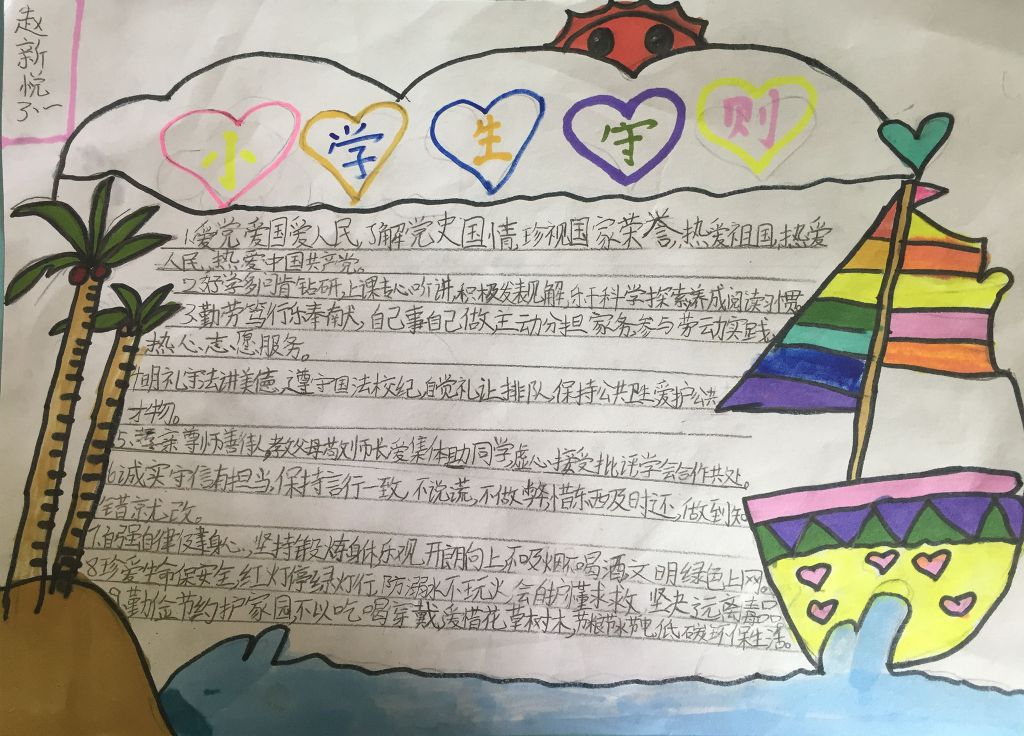 赵新悦
三、一
小学生守则
1.爱党爱国爱人民,了解党史国情,珍视国家荣誉,热爱祖国,热爱
人民,热爱中国共产党。
2.好学多问肯钻研,上课专心听讲,积极发表见解,乐于科学探索养成阅读习惯
3.勤劳笃行乐奉献,自己事自己做主动分担家务参与劳动实践,
热心志愿服务。
明礼守法讲美德,遵守国法校纪,自觉礼让排队,保持公共卫生爱护公共
才物。
5.孝亲尊师善待人,孝父母敬师长,爱集体助同学,虚心接受批评学会合作共处。
诚实守信有担当,保持言行一致,不说谎,不做弊,惜东西及时还,做到知
错就改。
7.自强自律健身心,坚持锻炼身体乐观,开朗向上,不吸烟不喝酒,文明绿色上网。
8.珍爱生命保安全,红灯停绿灯行,防溺水不玩火,会自护懂求救,坚决远离毒品
9.勤俭节约护家园,不以吃喝穿戴,爱惜花草树木,节粮节水节电,低碳环保生活。